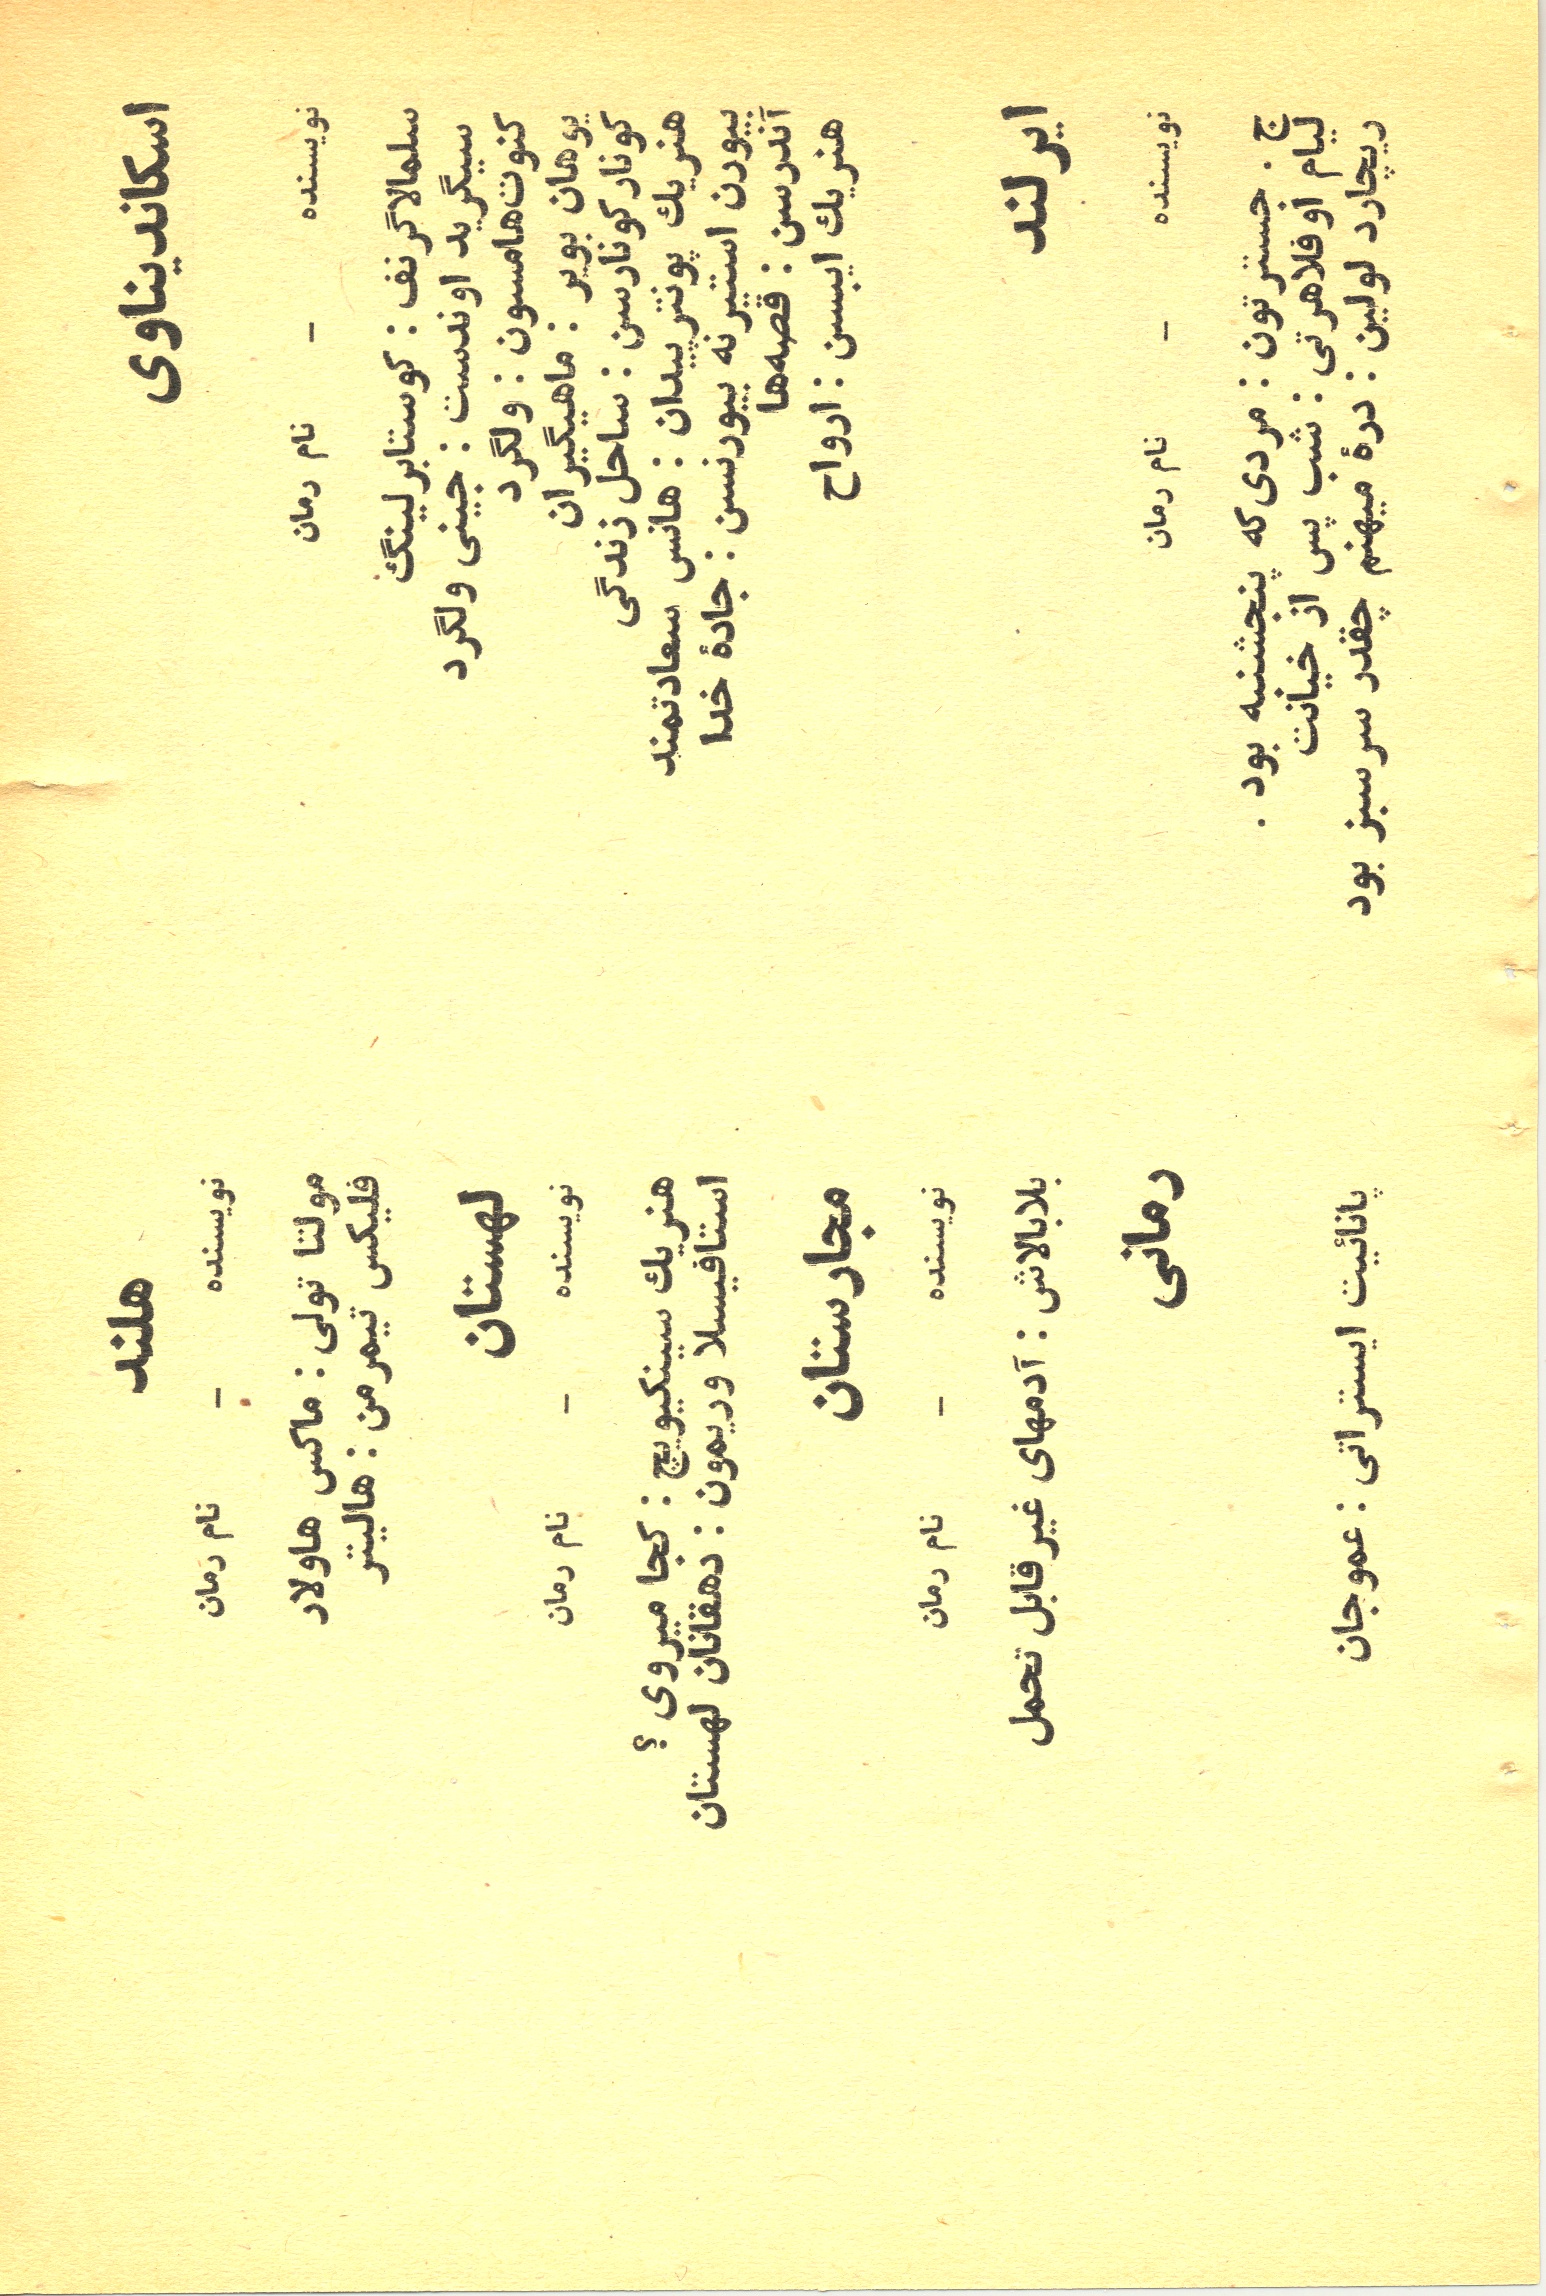 اسکاندیناوی
نویسنده – نام رمان
سلمالاگرنف : کوستابرلینگ
سیگرید اوندست : جینی ولگرد
کنوت‌هامسون : ولگرد
یوهان بویر : ماهیگیران
کونارکونارسن : ساحل زندگی
هنریك پونترپیدان : هانس سعادتمند
بیورن استیرنه بیورنسن : جادهٔ خدا
آندرسن : قصه‌ها
هنریك ایبسن : ارواح
ایرلند
نویسنده – نام رمان
ج . جسترتون : مردی‌که پنجشنبه بود .
لیام اوفلاهرتی : شب پس از خیانت
ریچارد لولین : درهٔ میهنم چقدر سرسبز بود
هلند
نویسنده – نام رمان
مولتا تولی : ماکس هاولاد
فلیکس تیمرمن : هالیتر
لهستان
نویسنده – نام رمان
هنریك سینکیویچ : کجا میروی ؟
استاقیسلا وریمون : دهقانان لهستان
مجارستان
نویسنده – نام رمان
بلابالاش : آدمهای غیرقابل تحمل
رمانی
پانائیت ایستراتی : عموجان